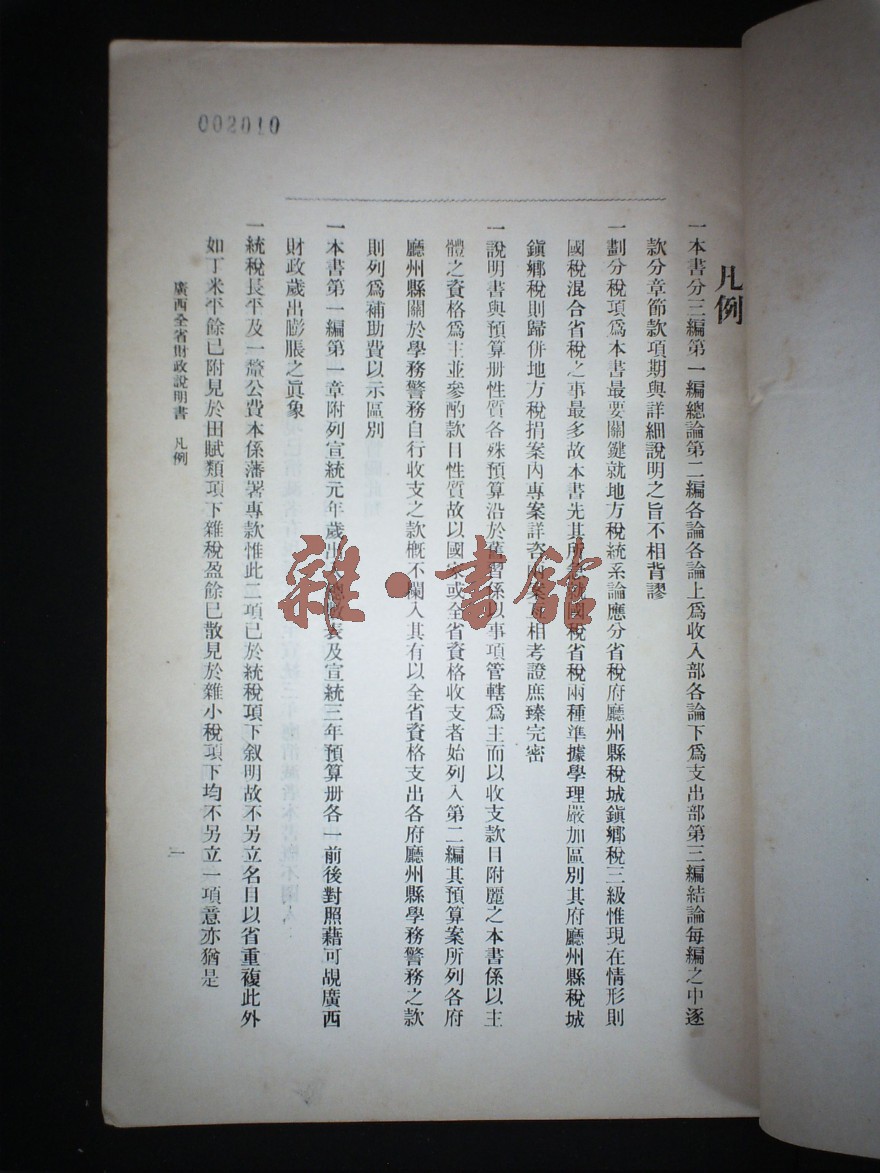 002010
凡例
一本書分三編第一編總論第二編各論各論上爲收入部各論下爲支出部第三編結論每編之中逐
款分章節款項期與詳細說明之旨不相背謬
一劃分稅項爲本書最要關鍵就地方稅統系論應分省稅府廳州縣稅城鎭鄉稅三級惟現在情形則
國稅混合省稅之事最多故本書先其所急就國稅省稅兩種準據學理嚴加區別其府廳州縣稅城
鎭鄉稅則歸併地方稅捐案內專案詳咨兩案互相考證庶臻完密
一說明書與預算册性質各殊預算沿於舊習係以事項管轄爲主而以收支款目附麗之本書係以主
體之資格爲主並參酌款目性質故以國家或全省資格收支者始列入第二編其預算案所列各府
廳州縣關於學務警務自行收支之款槪不闌入其有以全省資格支出各府廳州縣學務警務之款
則列爲補助費以示區別
一本書第一編第一章附列宣統元年歲出入總數表及宣統三年預算册各一前後對照藉可覘廣西
財政歲出膨脹之眞象
一統稅長平及一釐公費本係藩署專款惟此二項已於統稅項下叙明故不另立名目以省重複此外
如丁米平餘已附見於田賦類項下雜稅盈餘已散見於雜小稅項下均不另立一項意亦猶是
廣西全省財政說明書 凡例
一
雜·書館